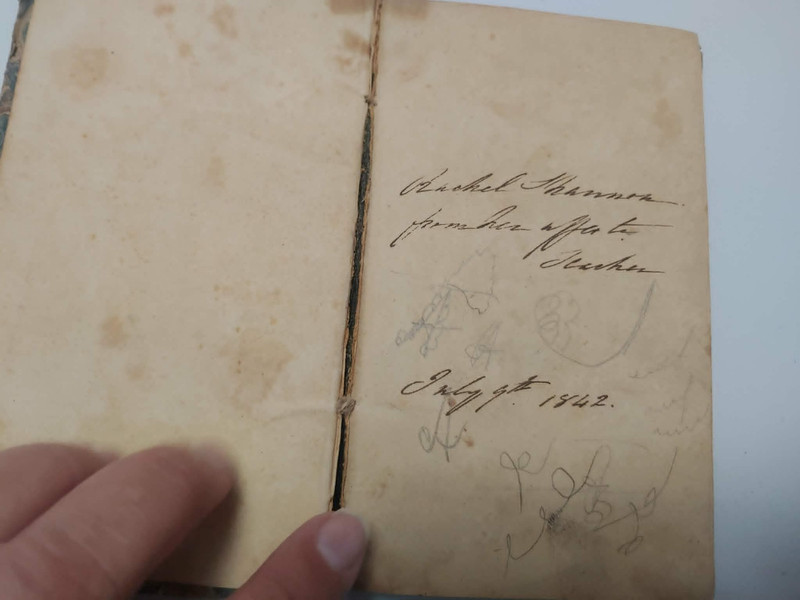 Rachel Shannon.
from her affecte
Teacher
July 9th 1842.